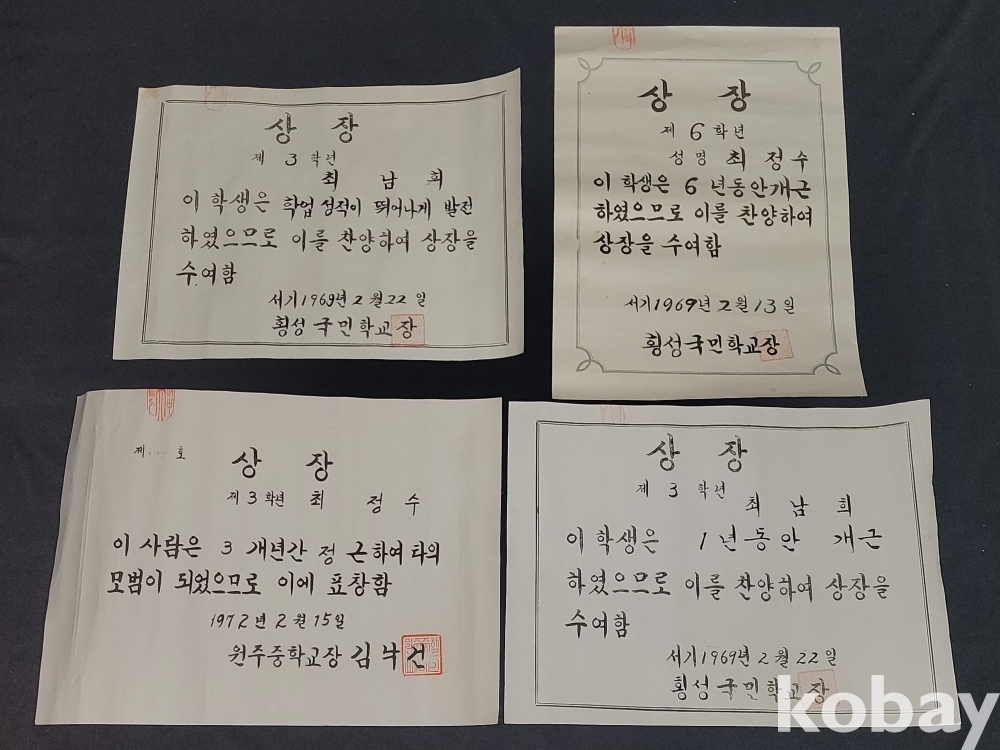 상 장
제 3 학년
최 남 희
이 학생은 학업 성적이 뛰어나게 발전
하였으므로 이를 찬양하여 상장을
수여함
서기1969년 2 월 22 일
횡성 국민학교장
상 장
제 6 학년
성명 최 정 수
이 학생은 6 년동안개근
하였으므로 이를 찬양하여
상장을 수여함
서기1969년 2 월 13 일
횡성국민학교장
제 호
상 장
제 3 학년 최 정 수
이 사람은 3 개년간 정 근하여 타의
모범이 되었으므로 이에 표창함
1972 년 2 월 15일
원주중학교장 김 낙 건
상 장
제 3 학년
최 남 희
이 학생은 1 년동안 개근
하였으므로 이를 찬양하여 상장을
수여함
서기1969년 2 월 22 일
횡성국민학교장
kobay